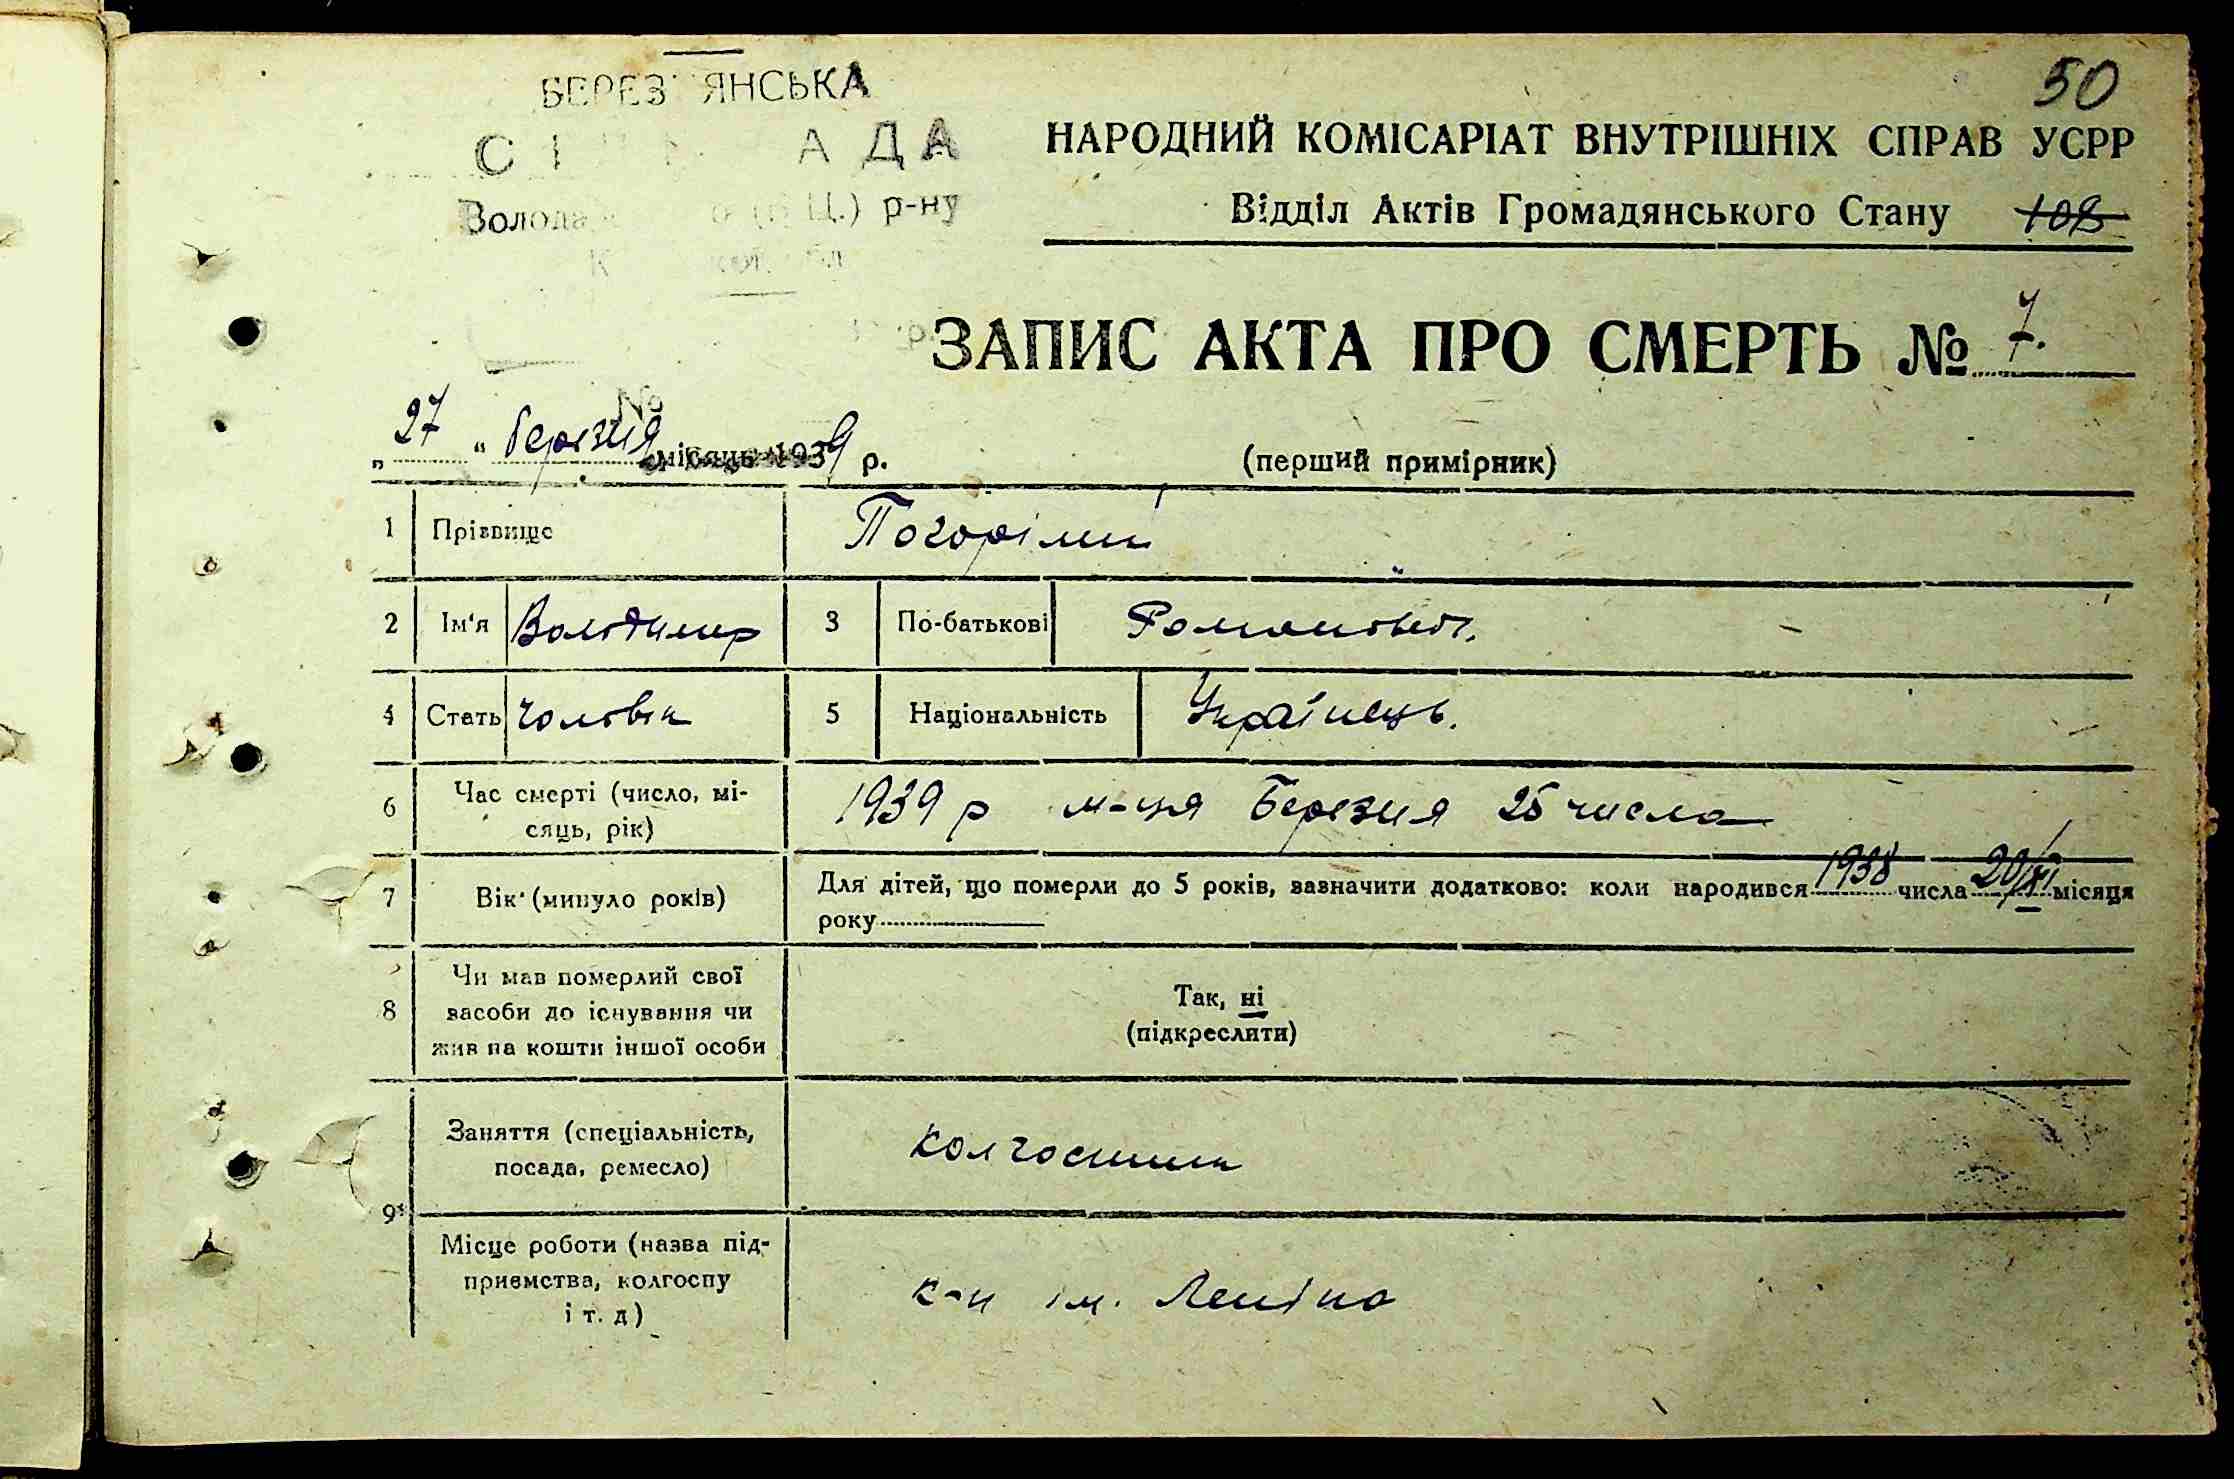 50
БЕРЕЗ ЯНСЬКА
НАРОДНИЙ КОМІСАРІАТ ВНУТРІШНІХ СПРАВ УСРР
р-ну
Відділ Актів Громадянського Стану 108
ЗАПИС АКТА ПРО СМЕРТЬ № 7.
„27“ березня місяць 1939 р.
(перший примірник)
1 Прізвище Погорілий
2 Ім'я Володимир 3 По-батькові Романович.
4 Стать чоловік 5 Національність Українець.
6 Час смерті (число, мі-
сяць, рік) 1939 р м-ця Березня 25 числа
7 Вік (минуло років) Для дітей, що померли до 5 років, зазначити додатково: коли народився 1938 числа 20/XI місяця
року
8 Чи мав померлий свої
засоби до існування чи
жив на кошти іншої особи
Так, ні
(підкреслити)
9 Заняття (спеціальність,
посада, ремесло) колгоспник
Місце роботи (назва під-
приємства, колгоспу
і т. д) к-п ім. Леніна